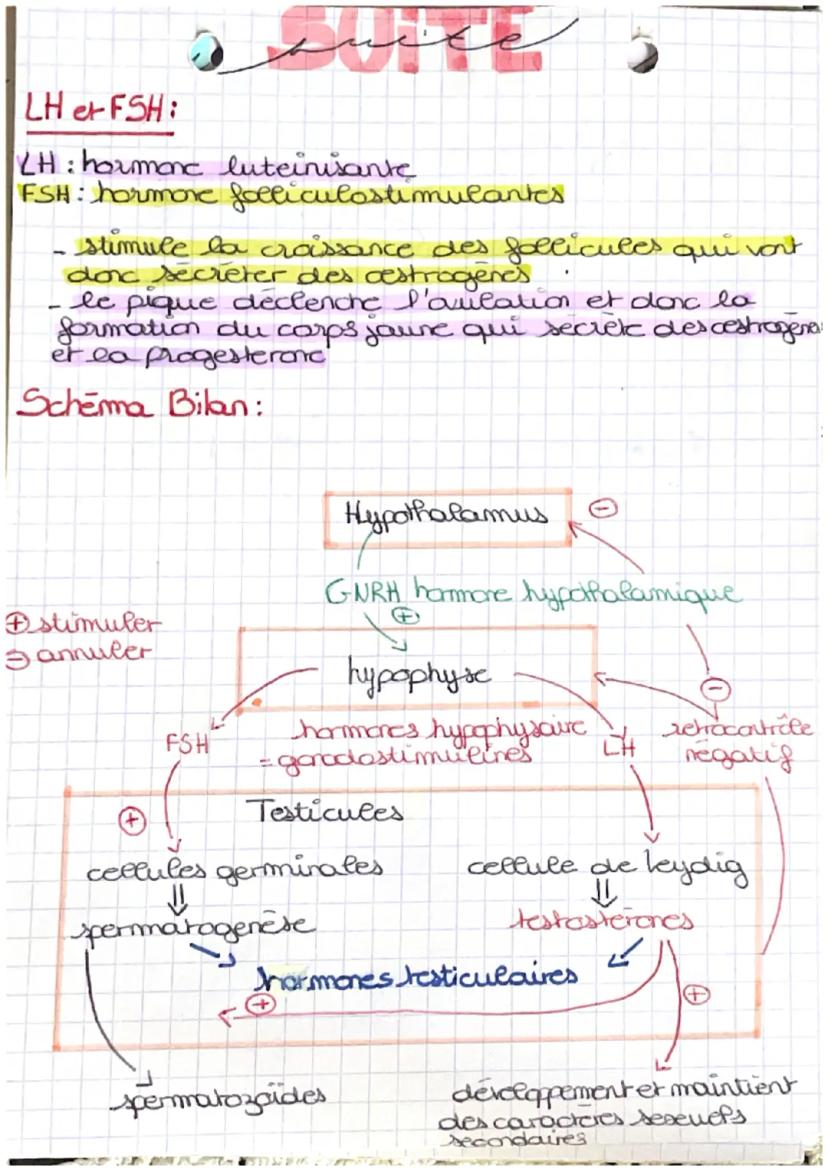 SUITE
suite
LH et FSH :
LH : hormone luteinisante
FSH : hormone folliculostimulantes
- stimule la croissance des follicules qui vont
donc sécréter des œstrogènes
- le pique déclenche l'avulation et donc la
formation du corps jaune qui sécrète des œstrogène
et la progesterone
Schéma Bilan :
Hypothalamus
⊖
GNRH hormone hypothalamique
⊕
⊕ stimuler
⊖ annuler
hypophyse
⊖
FSH
hormones hypophysaire
= gonadostimulines
LH
retrocontrôle
négatif
Testicules
⊕
cellules germinales
cellule de leydig
spermatogenèse
testostérones
hormones testiculaires
⊕
⊕
spermatozoïdes
développement et maintient
des caractères sexuels
secondaires